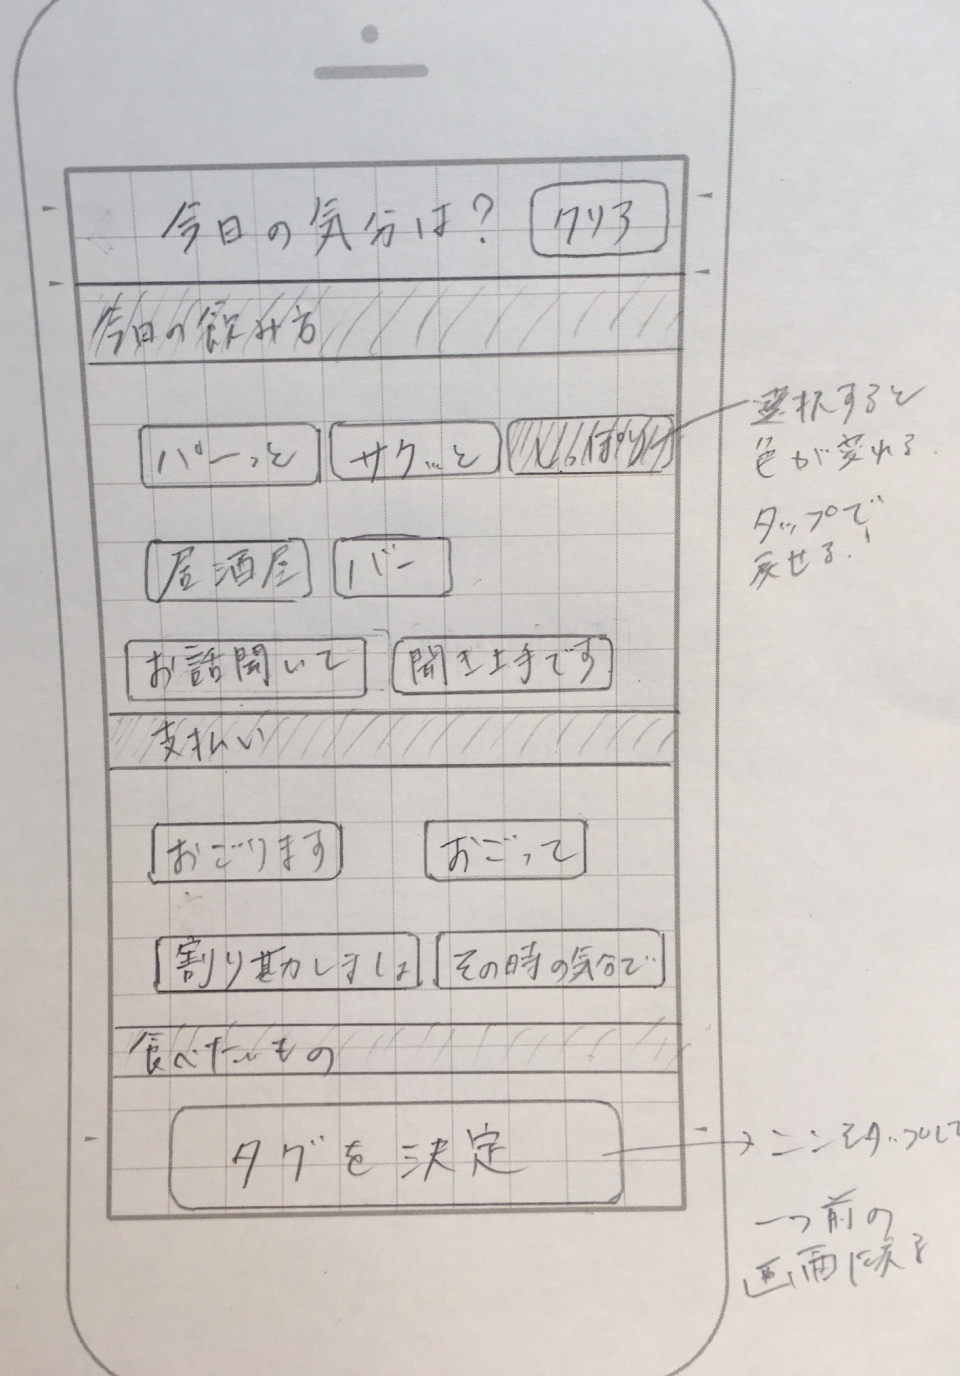 今日の気分は？ クリア
今日の飲み方
パーっと サクッと しっぽり
選択すると
色が変わる.
タップで
戻せる.
居酒屋 バー
お話聞いて 聞き上手です
支払い
おごります おごって
割り勘しましょ その時の気分で
食べたいもの
タグを決定
ここをタップして
一つ前の
画面に戻る